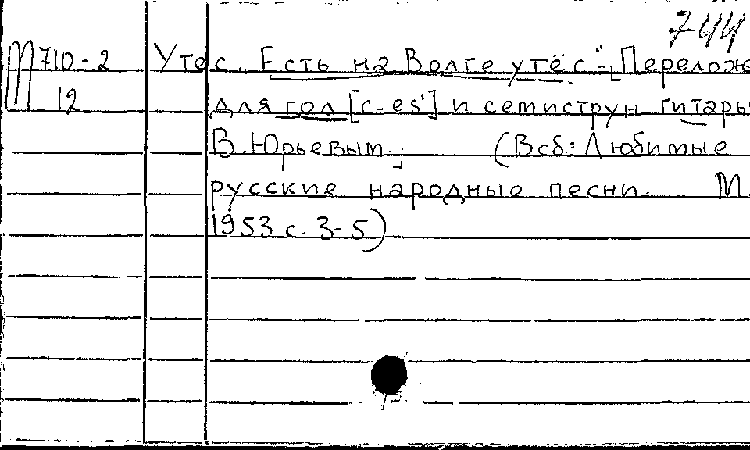 744
М710-2 Утес. Есть на Волге утёс". [Перелож
12 для гол [c-es'] и семиструн гитары
В. Юрьевым. (В сб: Любимые
русские народные песни. М.
1953 с. 3-5)